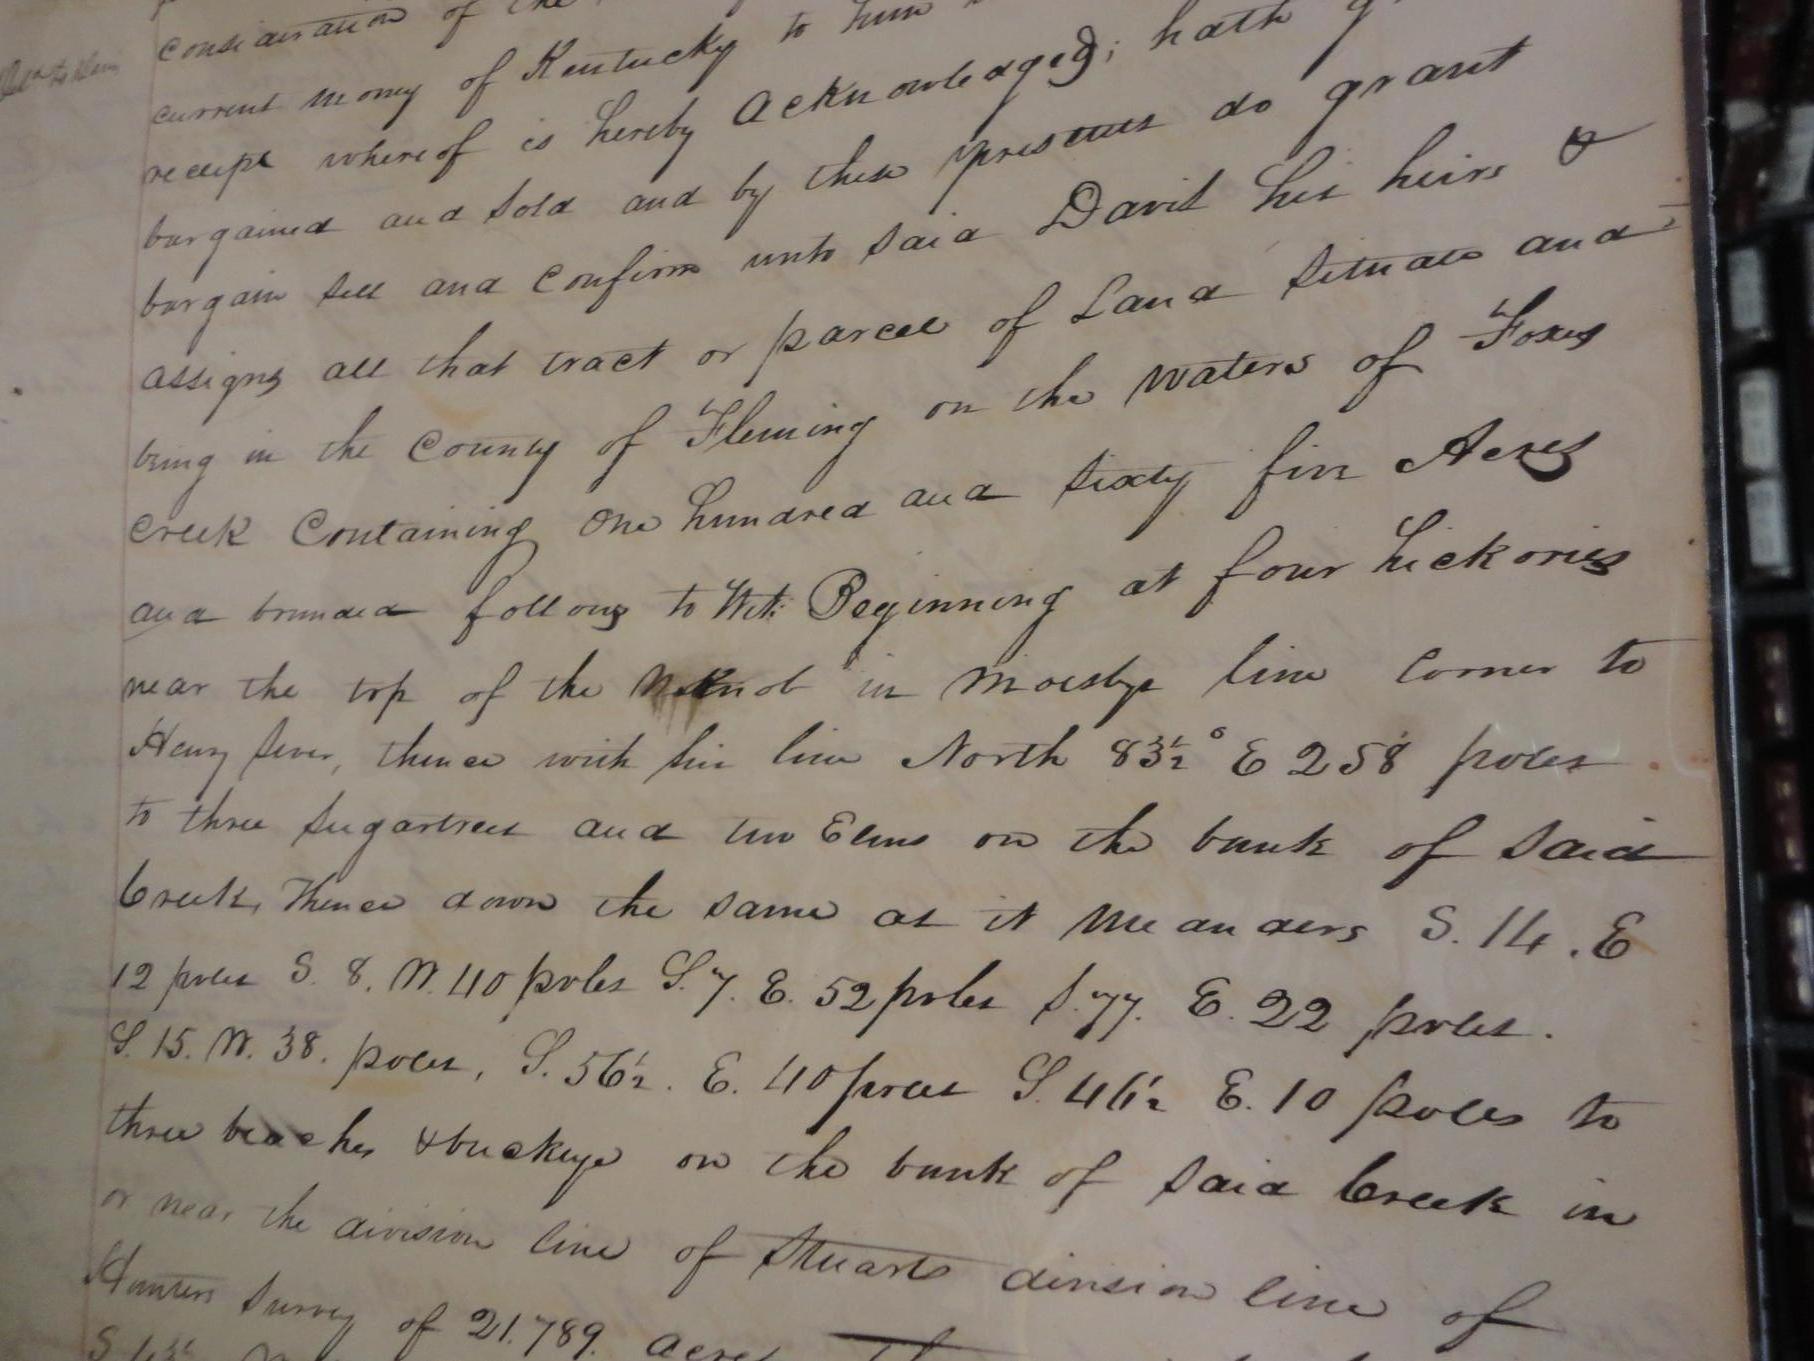 consideration of the
current money of Kentucky to him
receipt whereof is hereby acknowledged; hath
bargained and sold and by these presents do grant
bargain sell and confirm unto said David his heirs &
assigns all that tract or parcel of Land situate and
being in the County of Fleming on the waters of Foxes
Creek Containing One hundred and sixty five Acres
and bounded follows to Wit: Beginning at four hickories
near the top of the Knob in line corner to
Henry thence with his line North 83½° E 258 poles
to three sugartrees and two Elms on the bank of said
Creek, Thence down the same as it Meanders S. 14. E
12 poles S. 8. W. 40 poles S. 7. E. 52 poles S. 77. E. 22 poles.
S. 15. W. 38. poles, S. 56½. E. 40 poles S. 46½ E. 10 poles to
three beaches & buckeye on the bank of said Creek in
or near the division line of Stuarts division line of
Hunters survey of 21.789. acres